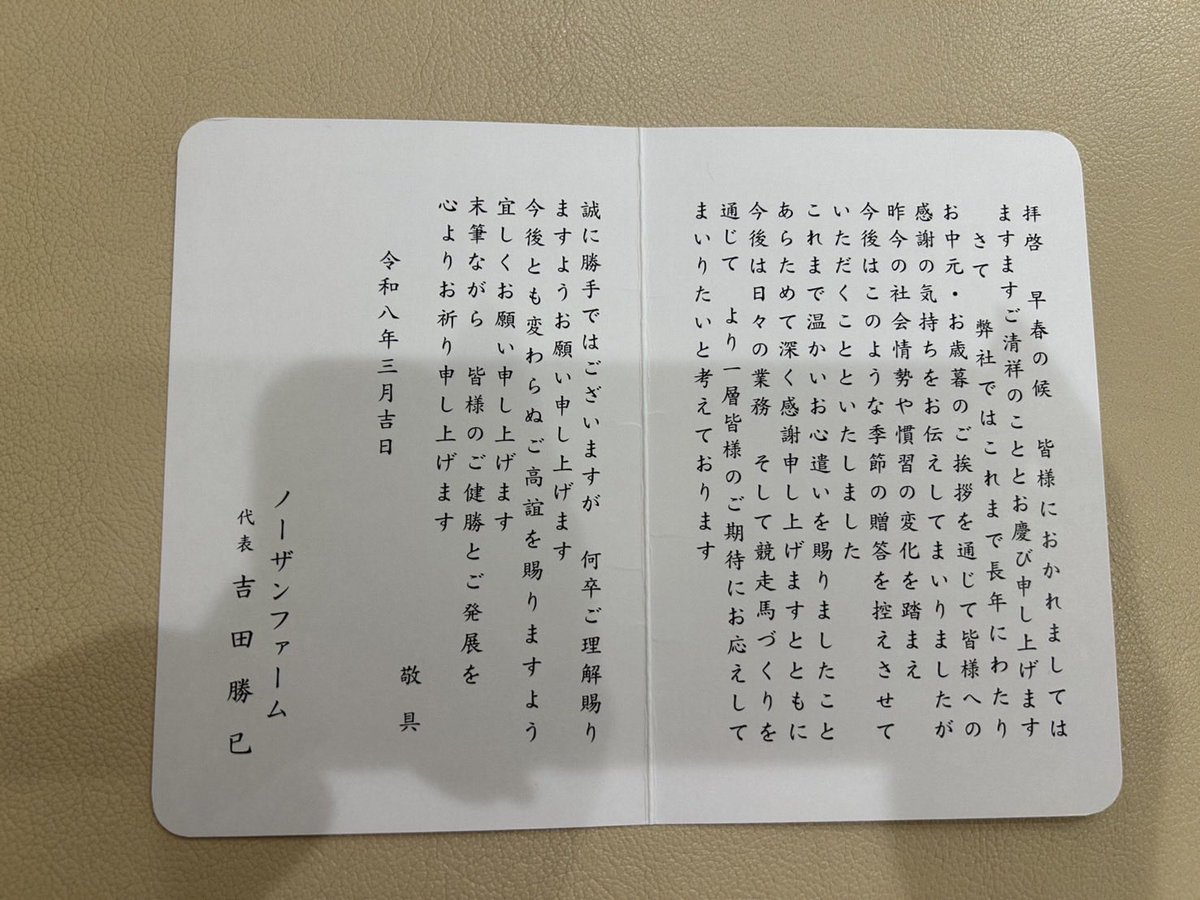 拝啓　早春の候　皆様におかれましては
ますますご清祥のこととお慶び申し上げます
さて　弊社ではこれまで長年にわたり
お中元・お歳暮のご挨拶を通じて皆様への
感謝の気持ちをお伝えしてまいりましたが
昨今の社会情勢や慣習の変化を踏まえ
今後はこのような季節の贈答を控えさせて
いただくことといたしました
これまで温かいお心遣いを賜りましたこと
あらためて深く感謝申し上げますとともに
今後は日々の業務　そして競走馬づくりを
通じて　より一層皆様のご期待にお応えして
まいりたいと考えております
誠に勝手ではございますが　何卒ご理解賜り
ますようお願い申し上げます
今後とも変わらぬご高誼を賜りますよう
宜しくお願い申し上げます
末筆ながら　皆様のご健勝とご発展を
心よりお祈り申し上げます
敬具
令和八年三月吉日
ノーザンファーム
代表　吉田勝已